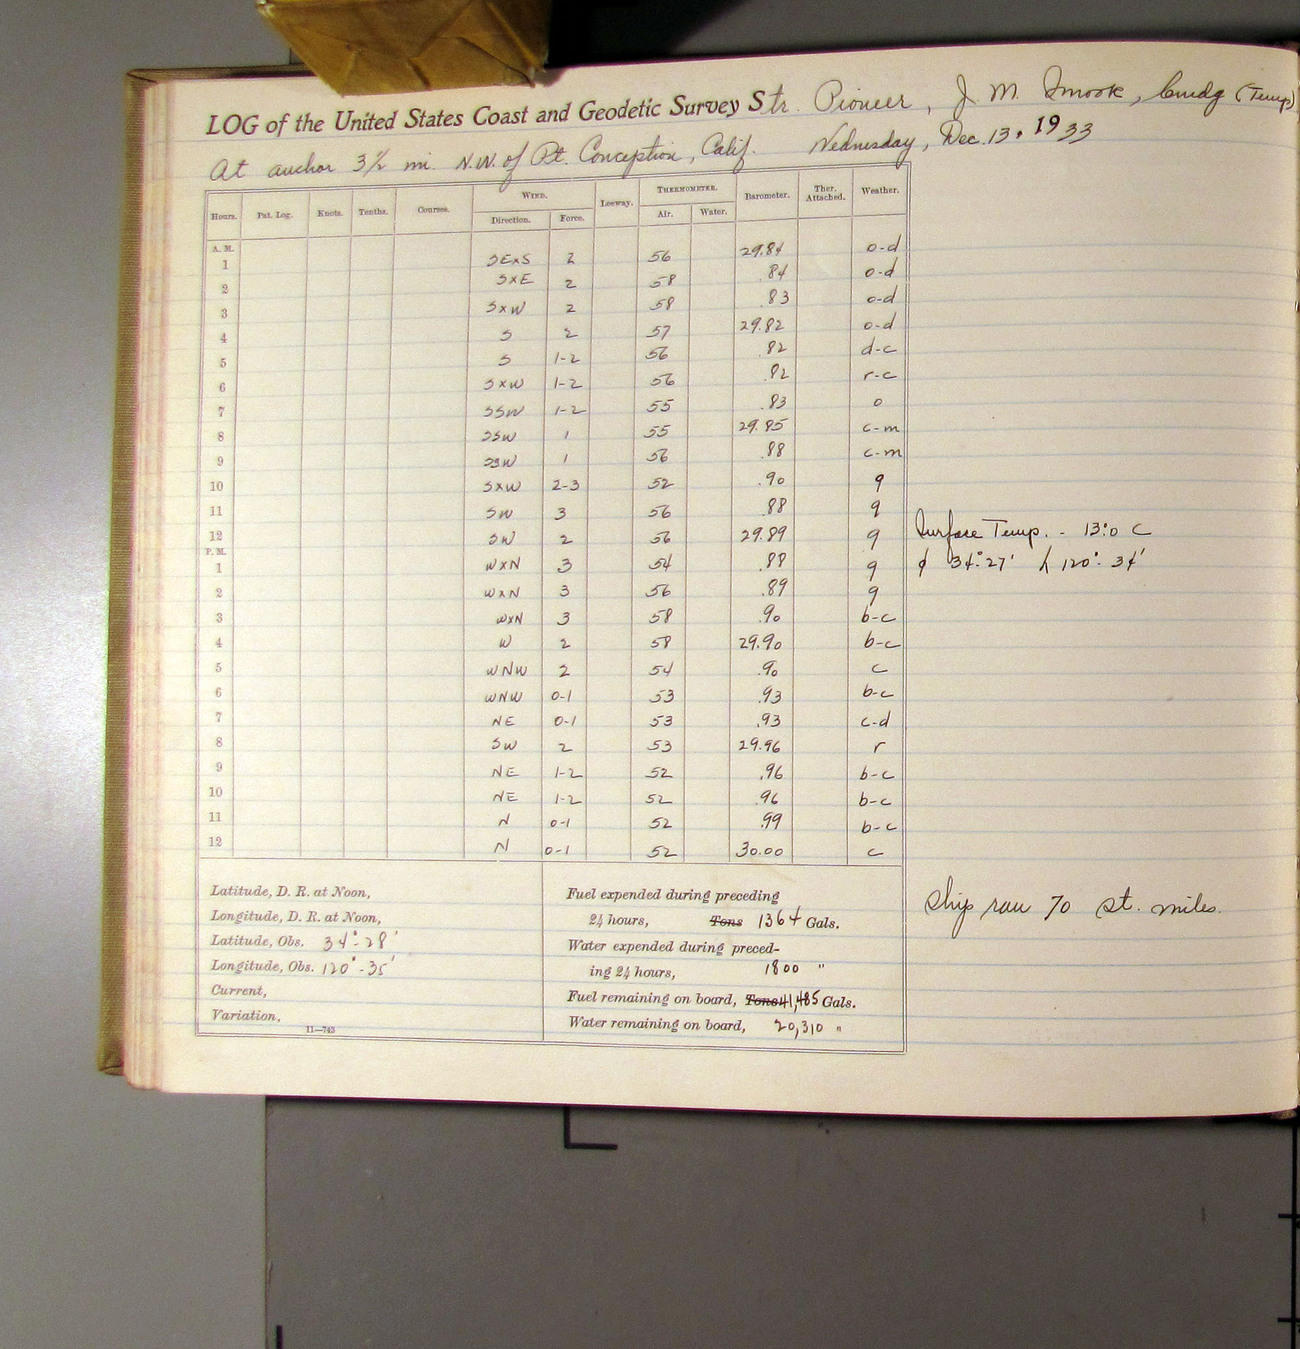 LOG of the United States Coast and Geodetic Survey Str. Pioneer, J. M. Smook, Comdg (Temp)
At anchor 3½ mi. N.W. of Pt. Conception, Calif. Wednesday, Dec. 13, 1933
Hours. Pat. Log. Knots. Tenths. Courses. WIND. Leeway. THERMOMETER. Barometer. Ther. Attached. Weather.
Direction. Force. Air. Water.
A. M.
1 SExS 2 56 29.84 o-d
2 SxE 2 58 .84 o-d
3 SxW 2 58 .83 o-d
4 S 2 57 29.82 o-d
5 S 1-2 56 .82 d-c
6 SxW 1-2 56 .82 r-c
7 SSW 1-2 55 .83 o
8 SSW 1 55 29.85 c-m
9 SSW 1 56 .88 c-m
10 SxW 2-3 52 .90 q
11 SW 3 56 .88 q
12 SW 2 56 29.89 q Surface Temp. - 13.°0 C
P. M.
1 WxN 3 54 .88 q ϕ 34°-27' λ 120°-34'
2 WxN 3 56 .89 q
3 WxN 3 58 .90 b-c
4 W 2 58 29.90 b-c
5 WNW 2 54 .90 c
6 WNW 0-1 53 .93 b-c
7 NE 0-1 53 .93 c-d
8 SW 2 53 29.96 r
9 NE 1-2 52 .96 b-c
10 NE 1-2 52 .96 b-c
11 N 0-1 52 .99 b-c
12 N 0-1 52 30.00 c
Latitude, D. R. at Noon,
Longitude, D. R. at Noon,
Latitude, Obs. 34°-28'
Longitude, Obs. 120°-35'
Current,
Variation,
11—743
Fuel expended during preceding
24 hours, Tons 1364 Gals.
Water expended during preced-
ing 24 hours, 1800 "
Fuel remaining on board, Tons 41,485 Gals.
Water remaining on board, 20,310 "
Ship ran 70 st. miles.